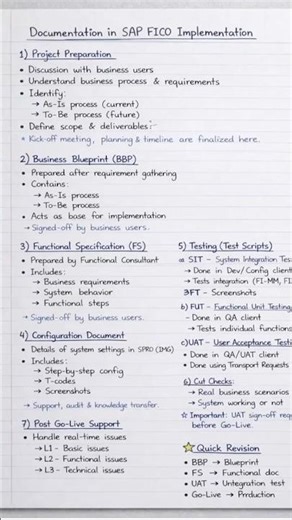 Documentation in SAP FICO Implementation
1) Project Preparation
• Discussion with business users
• Understand business process & requirements
• Identify:
→ As-Is process (current)
→ To-Be process (future)
• Define scope & deliverables:-
☆ Kick-off meeting, planning & timeline are finalized here.
2) Business Blueprint (BBP)
• Prepared after requirement gathering
• Contains:
→ As-Is process
→ To-Be process
• Acts as base for implementation
→ Signed-off by business users.
3) Functional Specification (FS)
• Prepared by Functional Consultant
• Includes:
→ Business requirements
→ System behavior
→ Functional steps
→ Signed-off by business users.
4) Configuration Document
• Details of system settings in SPRO (IMG)
• Includes:
→ Step-by-step config
→ T-codes
→ Screenshots
→ Support, audit & knowledge transfer.
7) Post Go-Live Support
• Handle real-time issues
→ L1 - Basic issues
→ L2 - Functional issues
→ L3 - Technical issues
5) Testing (Test Scripts)
a) SIT - System Integration Tes
→ Done in Dev/Config client
→ Tests integration (FI-MM, FI
3FT - Screenshots
b) FUT - Functional Unit Testing
- Done in QA client
→ Tests individual function
c) UAT - User Acceptance Testi
• Done in QA/UAT client
• Done using Transport Requests
6) Cut Checks:
→ Real business scenarios
→ System working or not
☆ Important: UAT sign-off req
before Go-Live.
☆ Quick Revision
• BBP → Blueprint
• FS → Functional doc
• UAT → Untegration test
• Go-Live → Prrduction